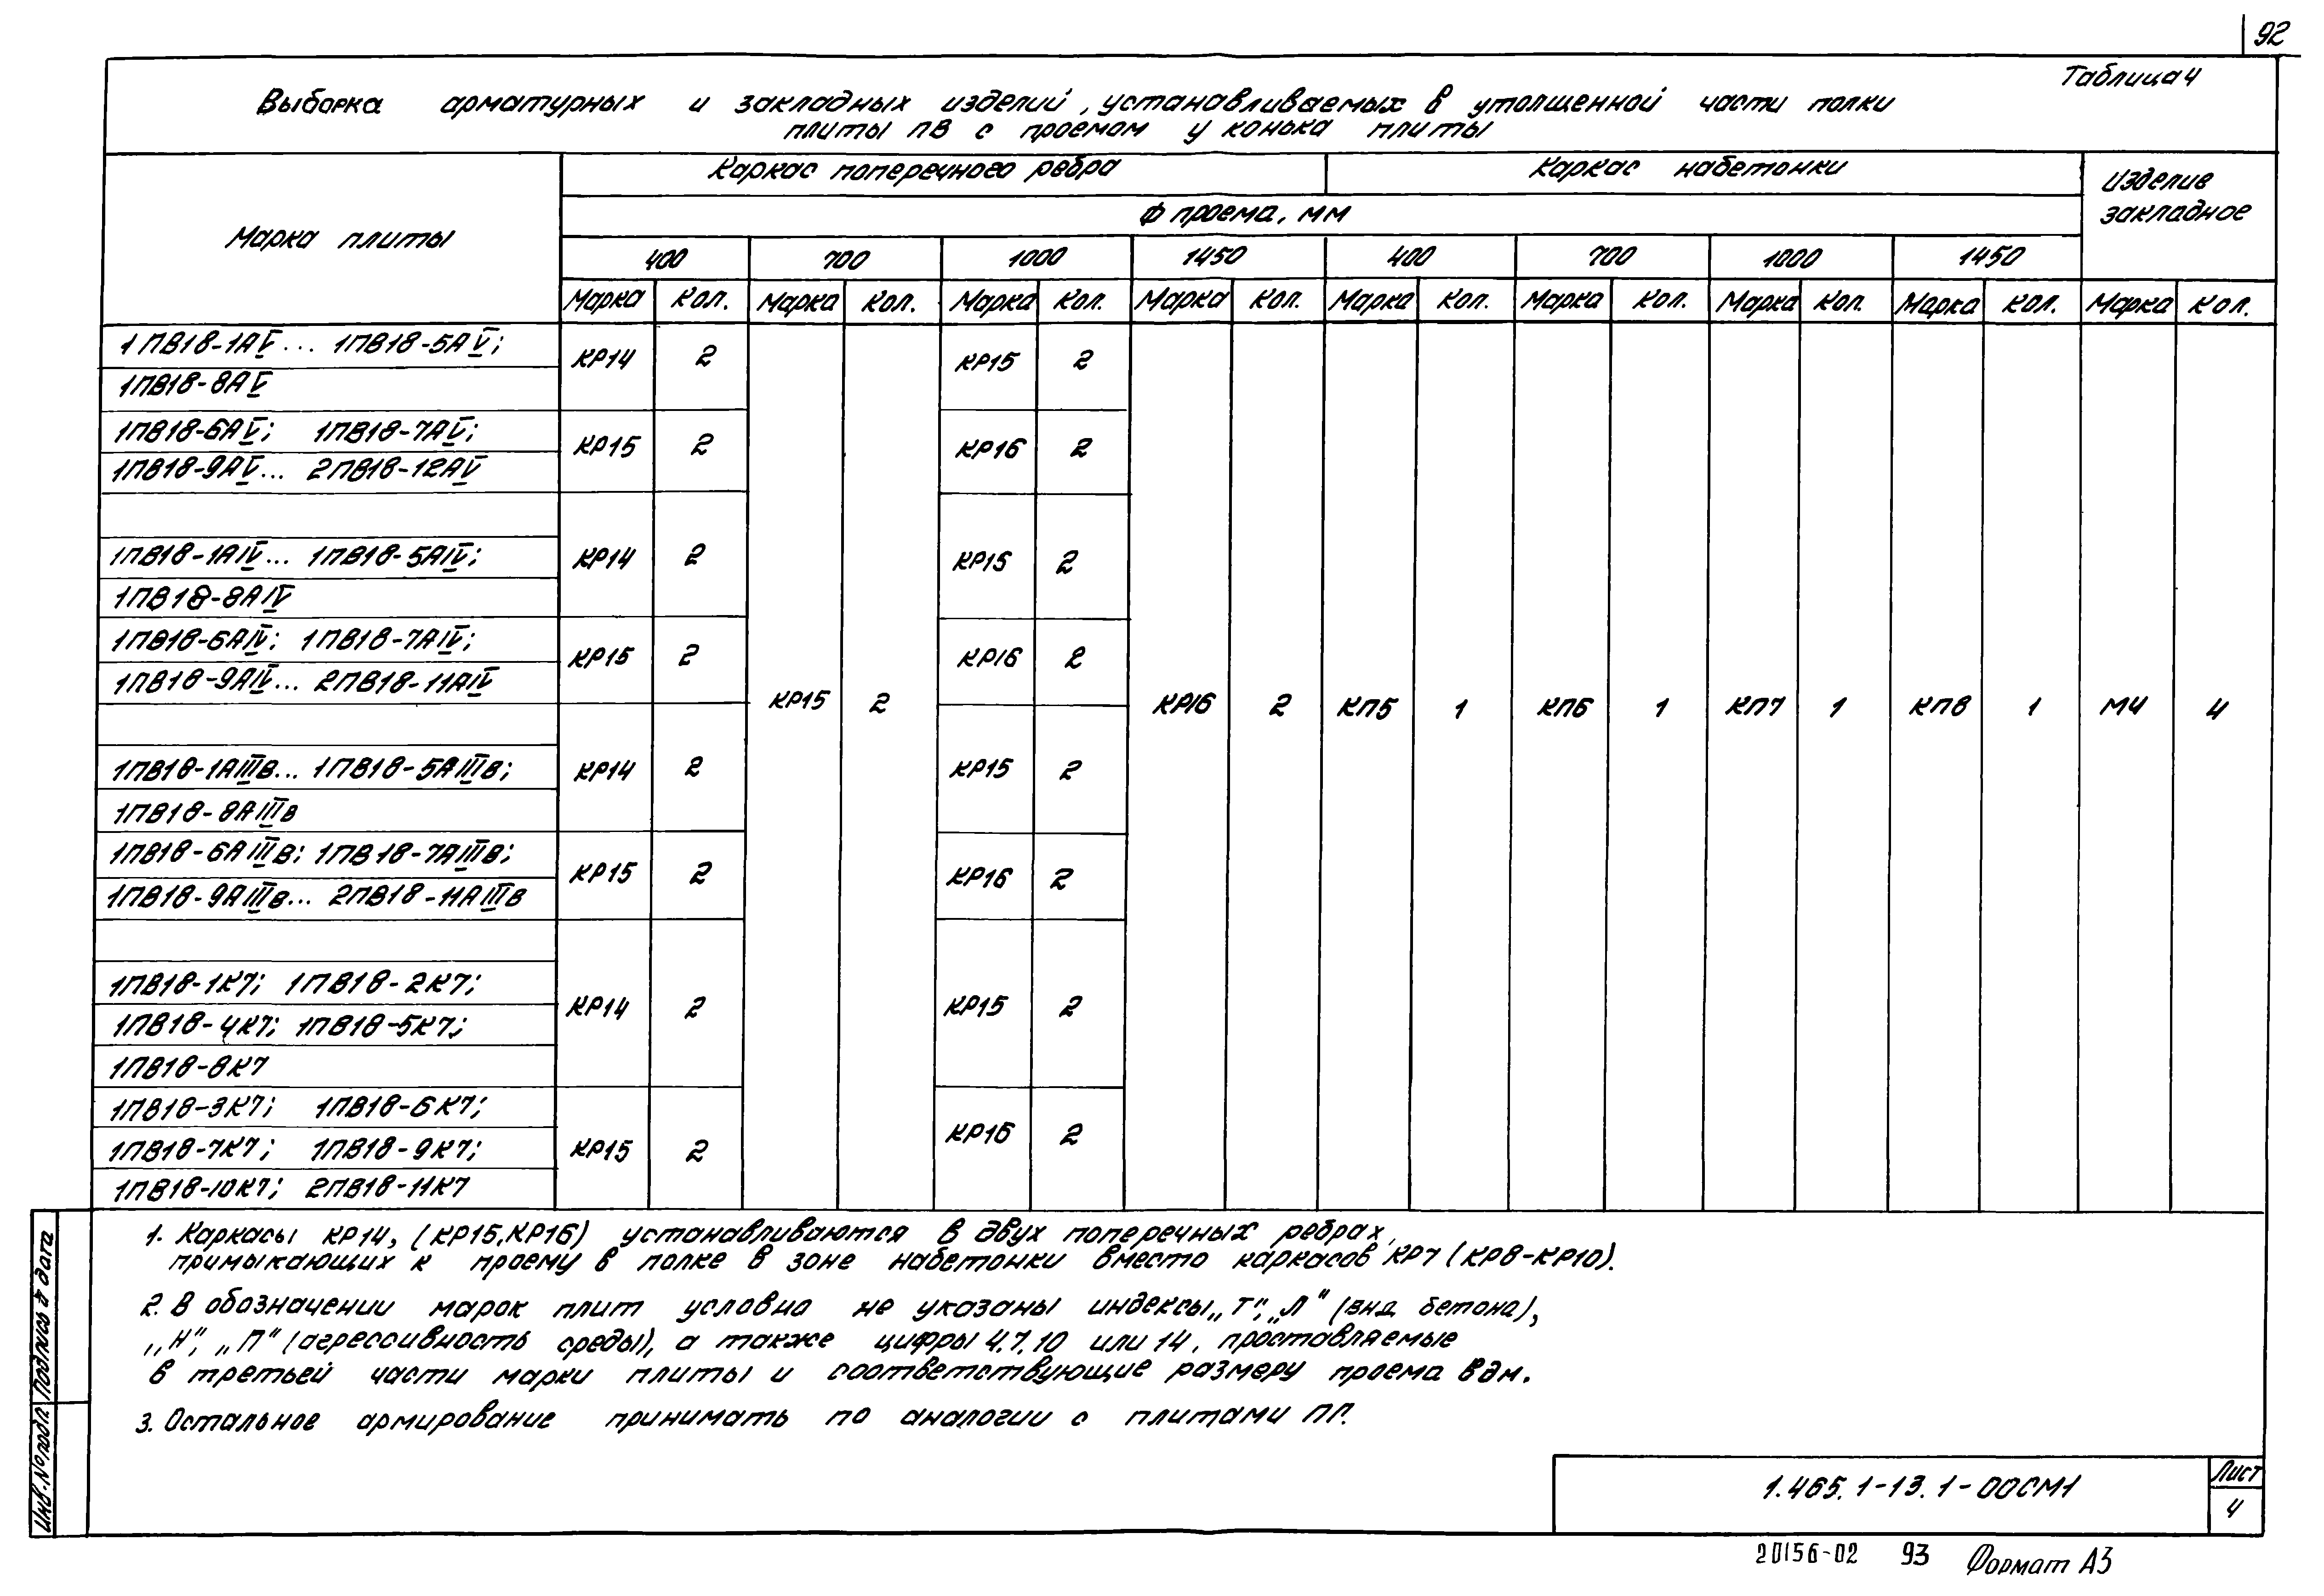 92
Таблица 4
Выборка арматурных и закладных изделий, устанавливаемых в утолщенной части полки
плиты ПВ с проемом у конька плиты
Марка плиты
Каркас поперечного ребра
Каркас набетонки
Изделие
закладное
Ф проема, мм
400 700 1000 1450 400 700 1000 1450
Марка Кол. Марка Кол. Марка Кол. Марка Кол. Марка Кол. Марка Кол. Марка Кол. Марка Кол. Марка Кол.
1ПВ18-1АV... 1ПВ18-5АV;
1ПВ18-8АV
КР14 2 КР15 2
1ПВ18-6АV; 1ПВ18-7АV;
1ПВ18-9АV... 2ПВ18-12АV
КР15 2 КР16 2
1ПВ18-1АIV... 1ПВ18-5АIV;
1ПВ18-8АIV
КР14 2 КР15 2
1ПВ18-6АIV; 1ПВ18-7АIV;
1ПВ18-9АIV... 2ПВ18-11АIV
КР15 2 КР16 2
КР15 2 КР16 2 КП5 1 КП6 1 КП7 1 КП8 1 М4 4
1ПВ18-1АIIIв... 1ПВ18-5АIIIв;
1ПВ18-8АIIIв
КР14 2 КР15 2
1ПВ18-6АIIIв; 1ПВ18-7АIIIв;
1ПВ18-9АIIIв... 2ПВ18-11АIIIв
КР15 2 КР16 2
1ПВ18-1К7; 1ПВ18-2К7;
1ПВ18-4К7; 1ПВ18-5К7;
1ПВ18-8К7
КР14 2 КР15 2
1ПВ18-3К7; 1ПВ18-6К7;
1ПВ18-7К7; 1ПВ18-9К7;
1ПВ18-10К7; 2ПВ18-11К7
КР15 2 КР16 2
1. Каркасы КР14, (КР15, КР16) устанавливаются в двух поперечных ребрах,
примыкающих к проему в полке в зоне набетонки вместо каркасов КР7 (КР8-КР10).
2. В обозначении марок плит условно не указаны индексы „Т", „Л" (вид бетона),
„Н", „П" (агрессивность среды), а также цифры 4, 7, 10 или 14, проставляемые
в третьей части марки плиты и соответствующие размеру проема в дм.
3. Остальное армирование принимать по аналогии с плитами ПГ.
Инв. № подл. Подпись и дата
1.465.1-13.1-00СМ1
Лист
4
20156-02 93 Формат А3